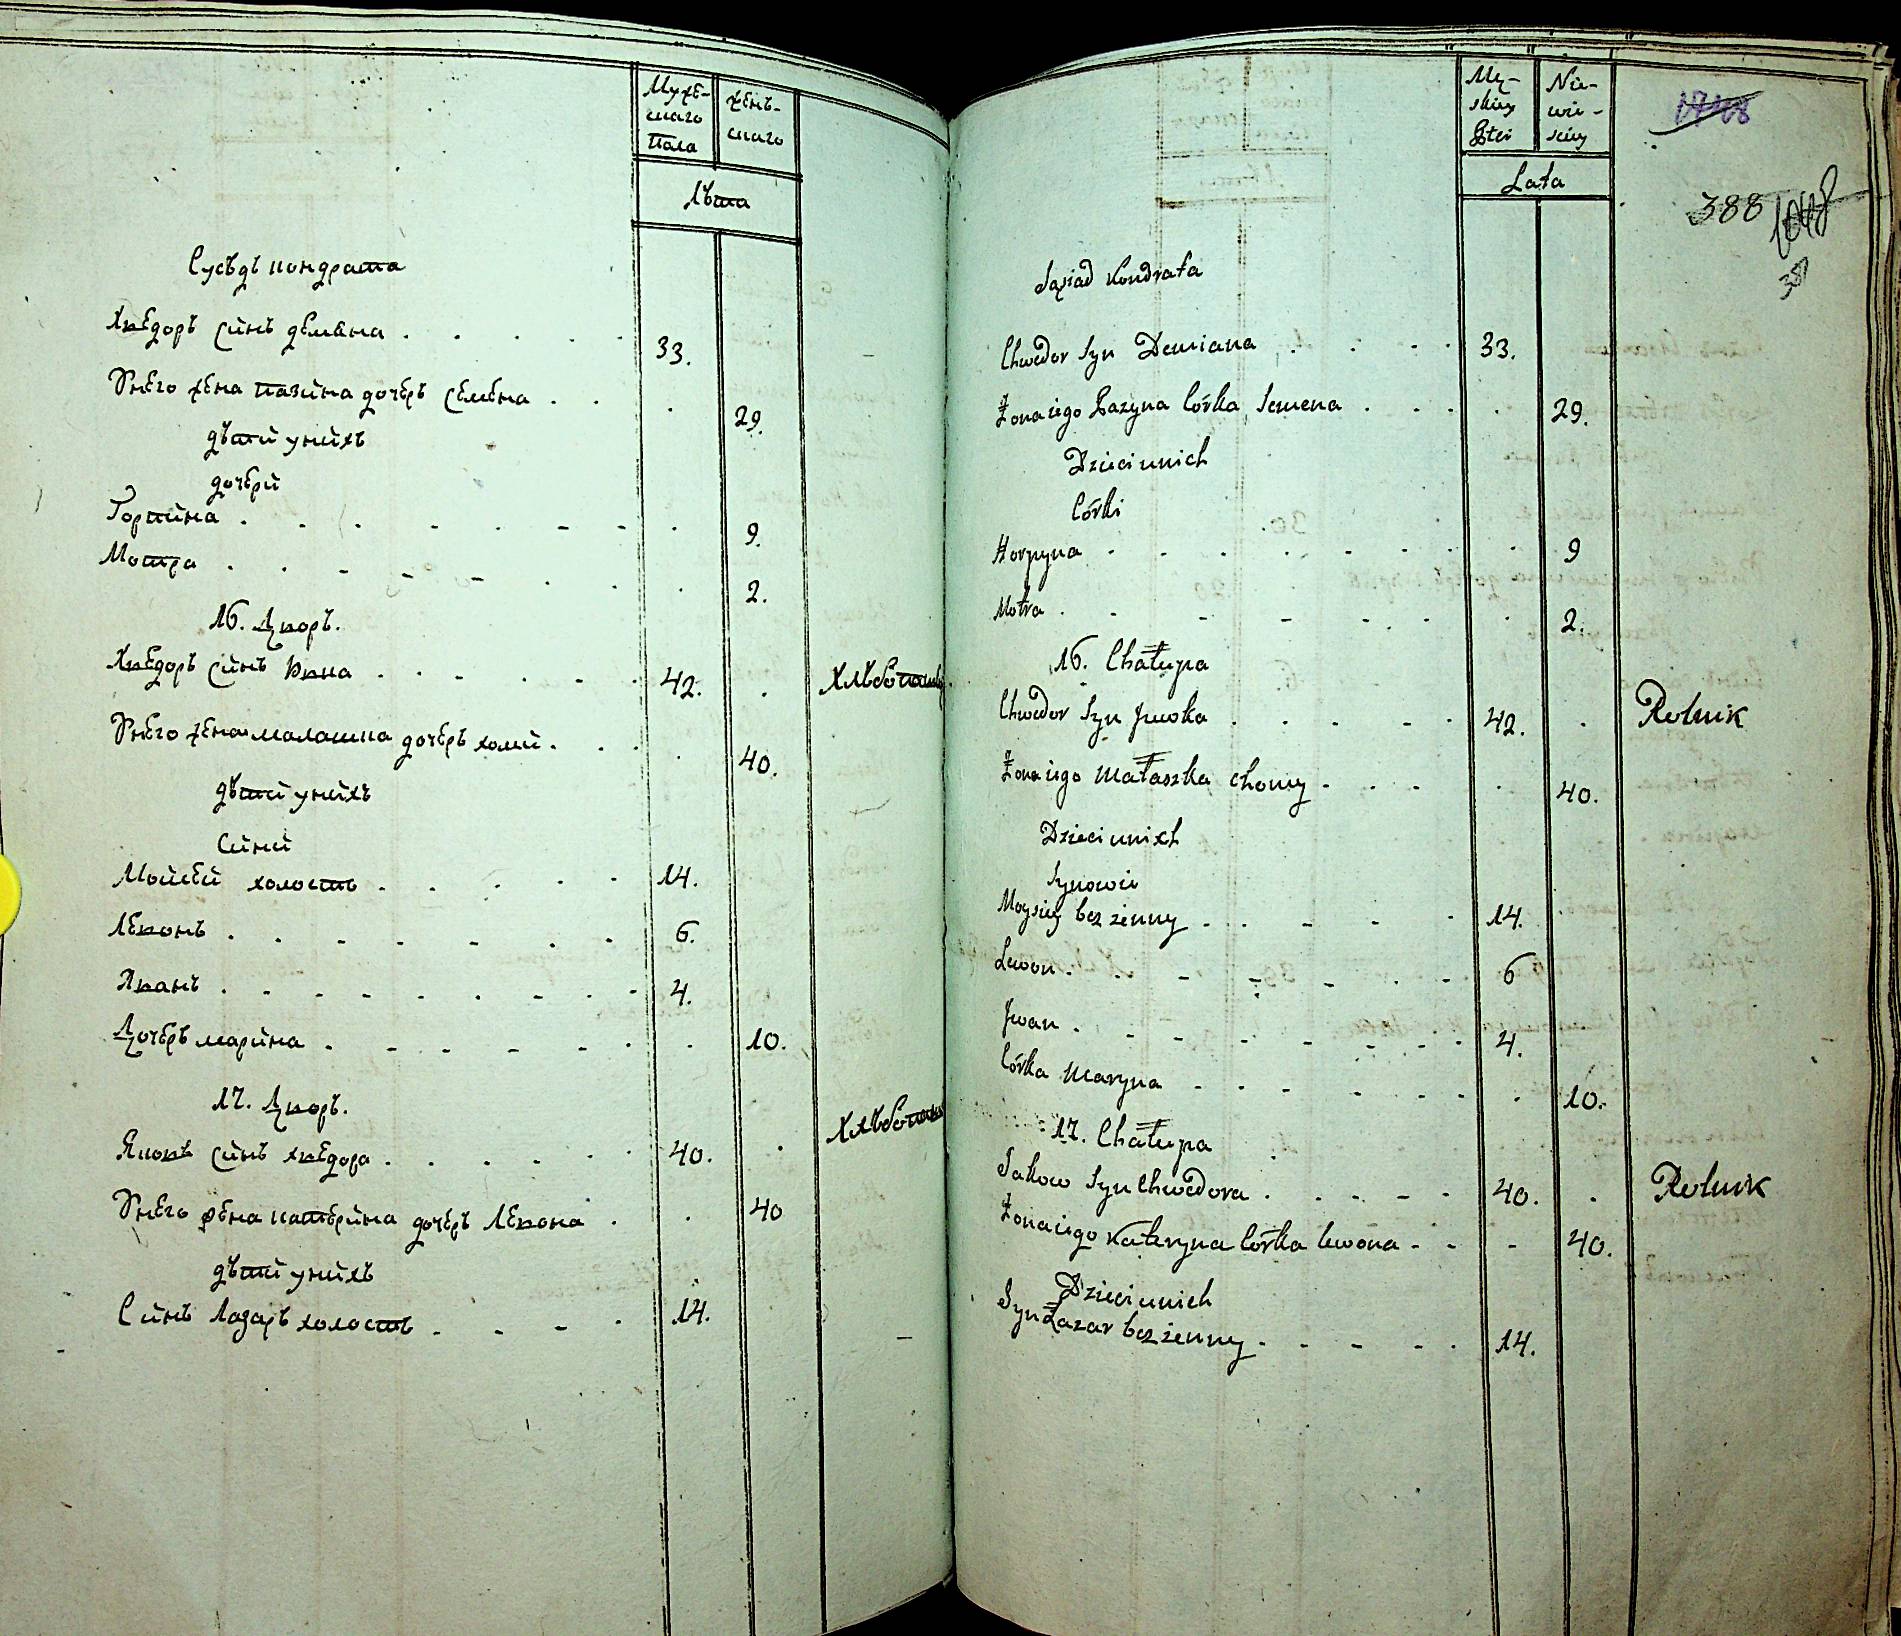 Муже-
скаго
пола
жен-
скаго
лѣта
Сусѣдъ кондрата
Хведоръ синъ демяна . . . . . 33.
Унего жена пазина дочерь семена . . . 29.
дѣти унихъ
дочери
Горпина . . . . . . . . 9.
Мотра . . . . . . . . 2.
16. Дворъ.
Хведоръ синъ Ивка . . . . . 42. . Хлѣбопашец
Унего жена малашка дочерь хоми . . . 40.
дѣти унихъ
Сини
Мойсей холостъ . . . . . 14.
Левонъ . . . . . . . 6.
Иванъ . . . . . . . . 4.
Дочерь марина . . . . . . . 10.
17. Дворъ.
Яковъ синъ хведора . . . . . 40. . Хлѣбопаш
Унего жена катерина дочерь Левона . . 40
дѣти унихъ
Синъ Лазаръ холостъ . . . . 14.
Mę-
skiey
Płci
Nie-
wie-
sciey
Lata
1048
388
1048
Sąsiad Kondrata
Chwedor Syn Demiana . . . . 33.
Żona iego Pazyna Córka Semena . . . . 29.
Dzieci unich
Córki
Horpyna . . . . . . . . 9
Motra . . . . . . . 2.
16. Chałupa
Chwedor Syn Jwoka . . . . . 42. . Rolnik
Żona iego Małaszka Chomy . . . . 40.
Dzieci unich
Synowie
Moysiey bez żenny . . . . . 14.
Lewon . . . . . . . 6
Jwan . . . . . . . . 4.
Córka Maryna . . . . . . . 10.
17. Chałupa
Jakow Syn Chwedora . . . . . 40. . Rolnik
Żona iego Kateryna Córka Lewona . . . 40.
Dzieci unich
Syn Łazar bez żenny . . . . . 14.